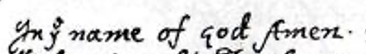 In yͤ name of god Amen.